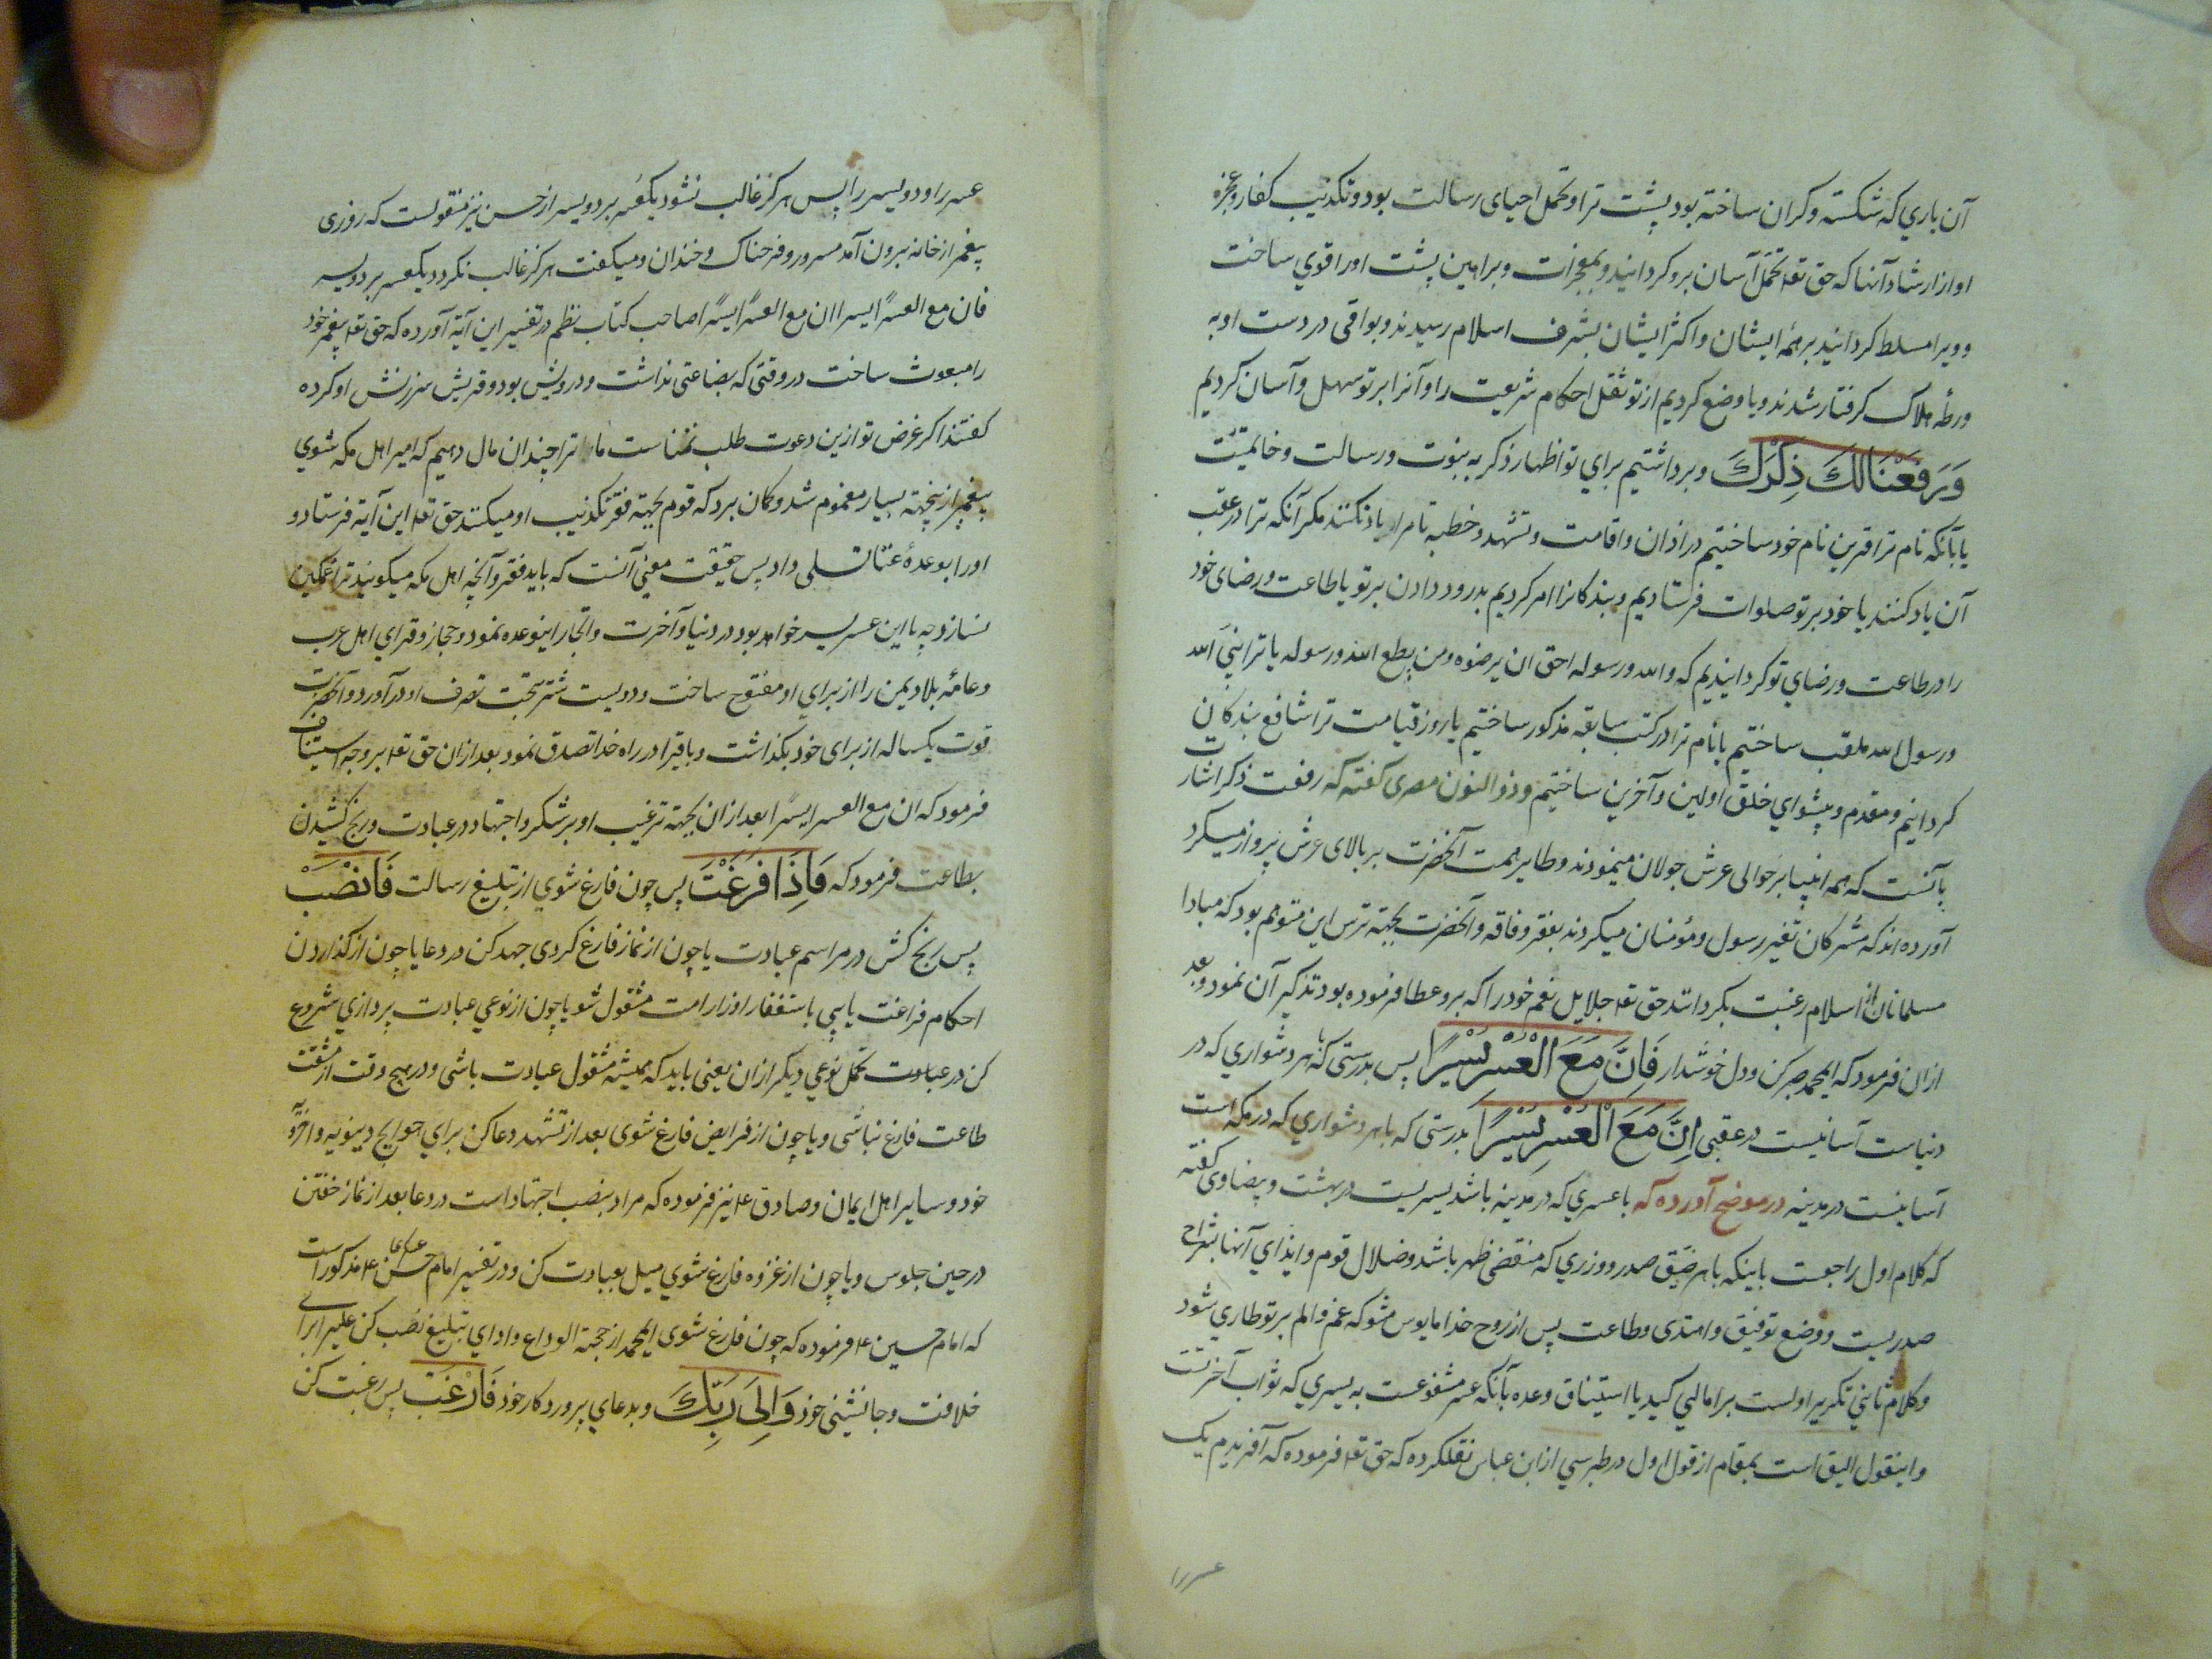 آن باري كه شكسته و كران ساخته بود پشت ترا و تحمل احياى رسالت بود و تكذيب كفار و عجزه
او از ارشاد آنها كه حق تعا تحمل آسان برو كردانيد و بمعجزات و براهين پشت او را قوي ساخت
و ويرا مسلط كردانيد بر همهٔ ايشان و اكثر ايشان بشرف اسلام رسيدند و بواقى در دست او به
ورطهٔ هلاك كرفتار شدند و يا وضع كرديم از تو ثقل احكام شريعت را و آنرا بر تو سهل و آسان كرديم
وَرَفَعْنَا لَكَ ذِكْرَكَ و برداشتيم براي تو اظهار ذكر به نبوت و رسالت و خاتميتت
يا بآنكه نام ترا قرين نام خود ساختيم در اذان و اقامت و تشهد و خطبه تا مرا ياد نكنند مكر آنكه ترا در عقب
آن ياد كنند يا خود بر تو صلوات فرستاديم و بندكانرا امر كرديم بدرود دادن بر تو يا طاعت و رضاى خود
را در طاعت و رضاي تو كردانيديم كه والله و رسوله احق ان يرضوه و من يطع الله و رسوله يا ترا بنبي الله
و رسول الله ملقب ساختيم يا نام ترا در كتب سابقه مذكور ساختيم يا روز قيامت ترا شافع بندكان
كردانيم و مقدم و پيشواي خلق اولين و آخرين ساختيم و ذو النون مصرى كفته كه رفعت ذكر اشارت
بآنست كه همه انبيا بر حوالى عرش جولان مينمودند و طاير همت آنحضرت بر بالاى عرش پرواز ميكرد
آورده‌اند كه مشركان تغيير رسول و مؤمنان ميكردند بفقر و فاقه و آنحضرت بجهة ترس اين متوهم بود كه مبادا
مسلمانان از اسلام رغبت بكردانند حق تعا جلايل نعم خود را كه برو عطا فرموده بود تذكير آن نمود و بعد
ازان فرمود كه ايمحمد صبر كن و دل خوشدار فَإِنَّ مَعَ الْعُسْرِ يُسْرًا پس بدرستى كه با هر دشواري كه در
دنياست آسانيست در عقبى إِنَّ مَعَ الْعُسْرِ يُسْرًا بدرستى كه با هر دشواري كه در مكه است
آسانيست در مدينه در موضح آورده كه با عسري كه در مدينه باشد يسريست در بهشت و بيضاوى كفته
كه كلام اول راجعست باينكه با هر ضيق صدر و وزري كه منقض ظهر باشد و ضلال قوم و ايذاي آنها شراح
صدريست و وضع توفيق و اهتدى و طاعت پس از روح خدا مايوس مشو كه غم و الم بر تو طاري شود
و كلام ثاني تكرير اولست برا مالبي كيد يا استيناف وعده بآنكه عسر مشفوعست به يسري كه ثواب آخرتست
و اينقول اليق است بمقام از قول اول در طبرسي از ابن عباس نقلكرده كه حق تعا فرموده كه آفريدم يك
عسر را
عسر را و دو يسر را پس هركز غالب نشود يكعسر بر دو يسر از حسن نيز منقولست كه روزى
پيغمبر از خانه بيرون آمد مسرور و فرحناك و خندان و ميكفت هركز غالب نكردد يكعسر بر دو يسر
فان مع العسر ايسرا ان مع العسر ايسرا صاحب كتاب نظم در تفسير اين آية آورده كه حق تعا پيغمبر خود
را مبعوث ساخت در وقتى كه بضاعتى نداشت و درويش بود و قريش سرزنش او كرده
كفتند اكر غرض تو ازين دعوت طلب غناست ما ترا چندان مال دهيم كه امير اهل مكه شوي
پيغمبر ازينجهة بسيار مغموم شد و كان برد كه قوم بجهة فقر تكذيب او ميكنند حق تعا اين آية فرستاد و
او را بوعدهٔ غنا تسلى داد پس حقيقت معني آنست كه بايد فقر و آنچه اهل مكه ميكويند ترا غمكين
نسازد چه با اين عسر يسر خواهد بود در دنيا و آخرت و انجاز اينوعده نمود و حجاز و قراي اهل عرب
و عامهٔ بلاد يمن را از براي او مفتوح ساخت و دويست شتر بتحت تصرف او درآورد و آنحضرت
قوت يكساله از براى خود بكذاشت و باقيرا در راه خدا تصدق نمود بعد ازان حق تعا بر وجه استيناف
فرمود كه ان مع العسر ايسرا بعد ازان بجهة ترغيب او بر شكر و اجتهاد در عبادت و رنج كشيدن
بطاعت فرمود كه فَإِذَا فَرَغْتَ پس چون فارغ شوي از تبليغ رسالت فَانْصَبْ
پس رنج كش در مراسم عبادت يا چون از نماز فارغ كردى جهد كن در دعا يا چون از كذاردن
احكام فراغت يابي باستغفار اوزار امت مشغول شو يا چون از نوعي عبادت پردازي شروع
كن در عبادت تحمل نوعي ديكر ازان يعنى بايد كه هميشه مشغول عبادت باشى و در هيچ وقت از مشقت
طاعت فارغ نباشى و يا چون از فرايض فارغ شوى بعد از تشهد دعا كن براي حوايج دينويه و اخرويه
خود و ساير اهل ايمان و صادق ع نيز فرموده كه مراد بنصب اجتهاد است در دعا بعد از نماز خفتن
در حين جلوس و يا چون از غزوه فارغ شوي ميل بعبادت كن و در تفسير امام حسن عسكرى ع مذكور است
كه امام حسين ع فرموده كه چون فارغ شوى ايمحمد از حجة الوداع و اداي تبليغ نصب كن علي را براى
خلافت و جانشينى خود وَإِلَى رَبِّكَ و بدعاي پروردكار خود فَارْغَبْ پس رغبت كن